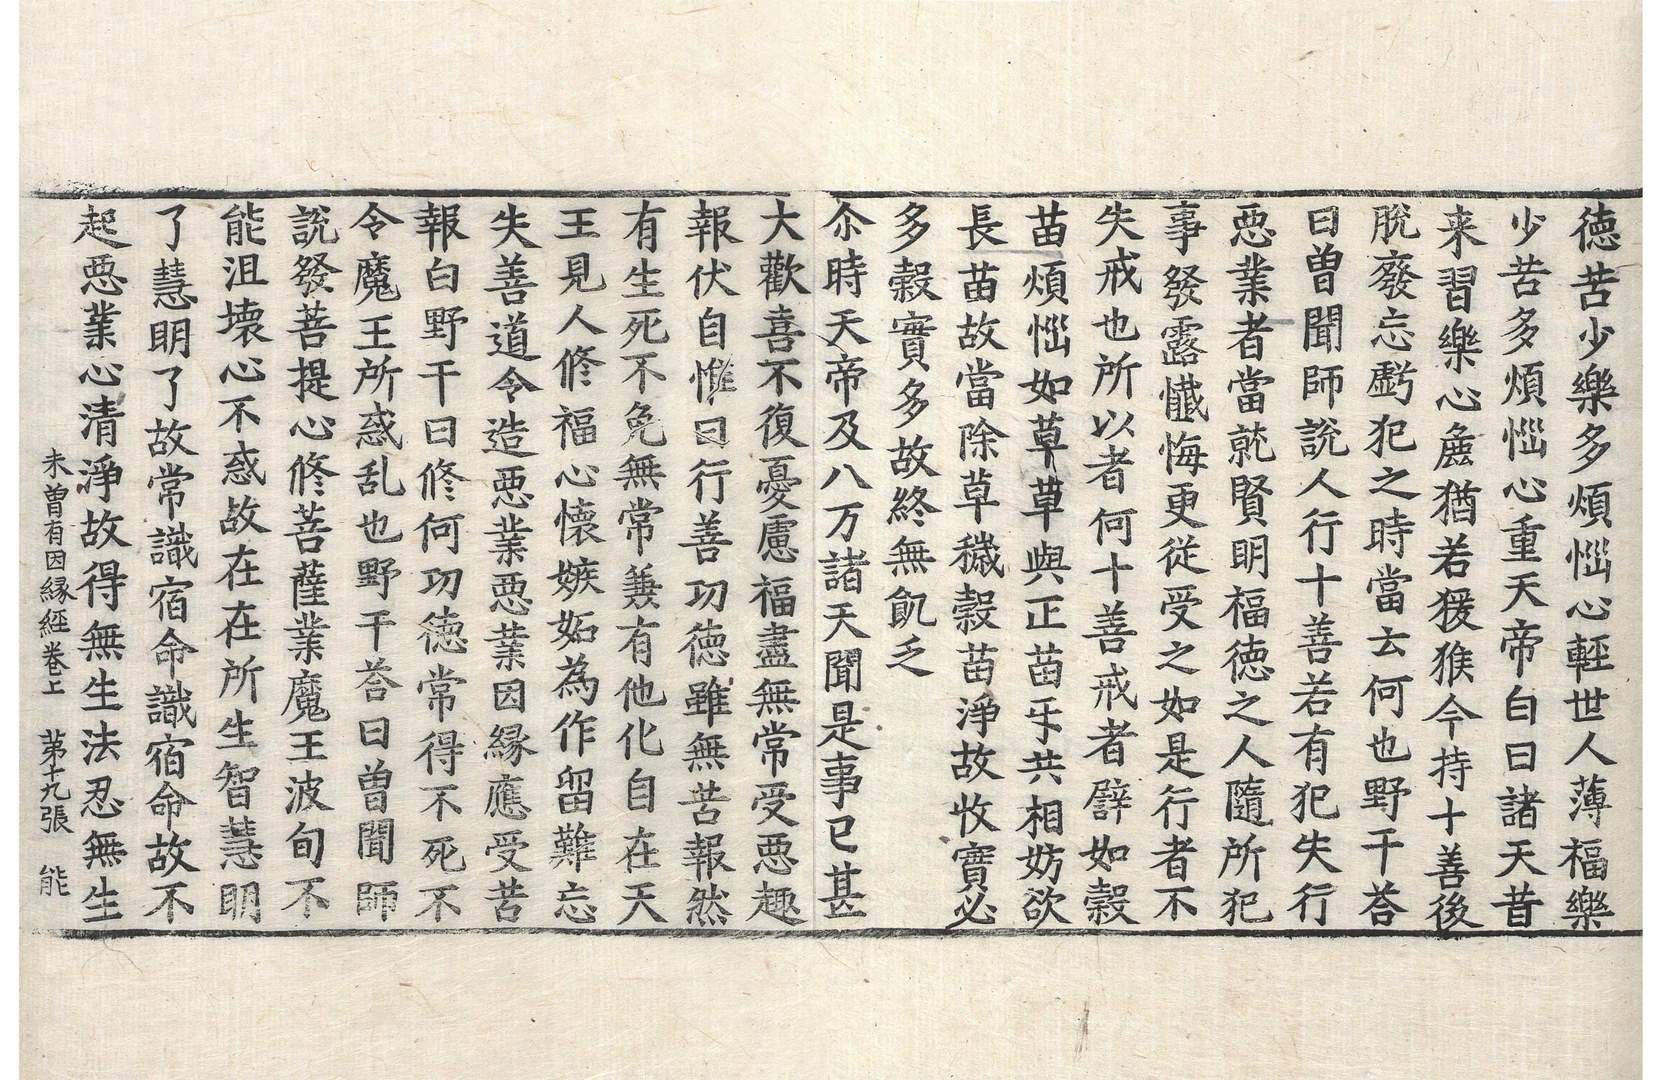 德苦少樂多煩惱心輕世人薄福樂
少苦多煩惱心重天帝白曰諸天昔
来習樂心麁猶若猨猴今持十善後
脫癈忘虧犯之時當云何也野干荅
曰曽聞師說人行十善若有犯失行
惡業者當就賢明福德之人隨所犯
事發露懺悔更從受之如是行者不
失戒也所以者何十善戒者譬如穀
苗煩惱如草草與正苗乎共相妨欲
長苗故當除草穢穀苗淨故收實必
多穀實多故終無飢乏
尒時天帝及八万諸天聞是事已甚
大歡喜不復憂慮福盡無常受惡趣
報伏自惟曰行善功德雖無苦報然
有生死不免無常兼有他化自在天
王見人修福心懷嫉妬為作留難忘
失善道令造惡業惡業因緣應受苦
報白野干曰修何功德常得不死不
令魔王所惑乱也野干荅曰曽聞師
說發菩提心修菩薩業魔王波旬不
能沮壞心不惑故在在所生智慧明
了慧明了故常識宿命識宿命故不
起惡業心清淨故得無生法忍無生
未曽有因縁經卷上 第十九張 能